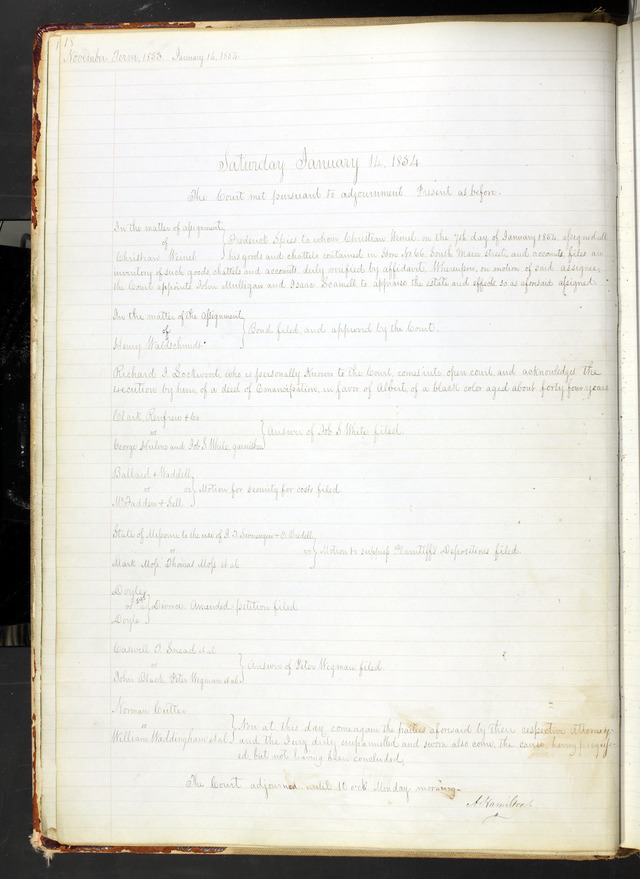 18
November Term, 1853 January 14, 1854
Saturday January 14, 1854
The Court met pursuant to adjournment Present as before.
In the matter of assignment
of
Christian Weinel
Frederick Spies to whom Christian Weinel on the 7th day of January 1854, assigned all
his goods and chattels contained in Store No 66 South Main street, and accounts, files an
inventory of such goods chattels and accounts duly verified by affidavit. Whereupon, on motion of said assignee,
the Court appoints John Mulligan and Isaac to appraise the estate and effects so as aforesaid assigned.
In the matter of the assignment
of
Henry Waldschmidt
Bond filed, and approved by the Court.
Richard J. Lockwood, who is personally known to the Court, comes into open court, and acknowledges the
execution by him, of a deed of Emancipation, in favor of Albert, of a black color aged about forty four years
Clark, Renfrew & Co
vs
George and Job S White, garnishee
Answer of Job S White filed
Ballard & Waddell
vs
McFadden & Sell
Motion for security for costs filed
State of Missouri to the use of
vs
Mark Moss, Thomas Moss et al
Motion to suppress Plaintiff's Depositions filed.
Doyle
vs
Doyle
Divorce. Amended petition filed
Caswell O. Snead et al
vs
John Black, Peter Wegman et al
Answer of Peter Wegman filed.
Norman Cutter
vs
William Waddingham et al
Now at this day, come again the parties aforesaid by their respective Attorneys
and the Jury duly empannelled and sworn also come, the cause having progress
ed but not having been concluded,
The Court adjourned until 10 o'ck Monday morning.
A Hamilton